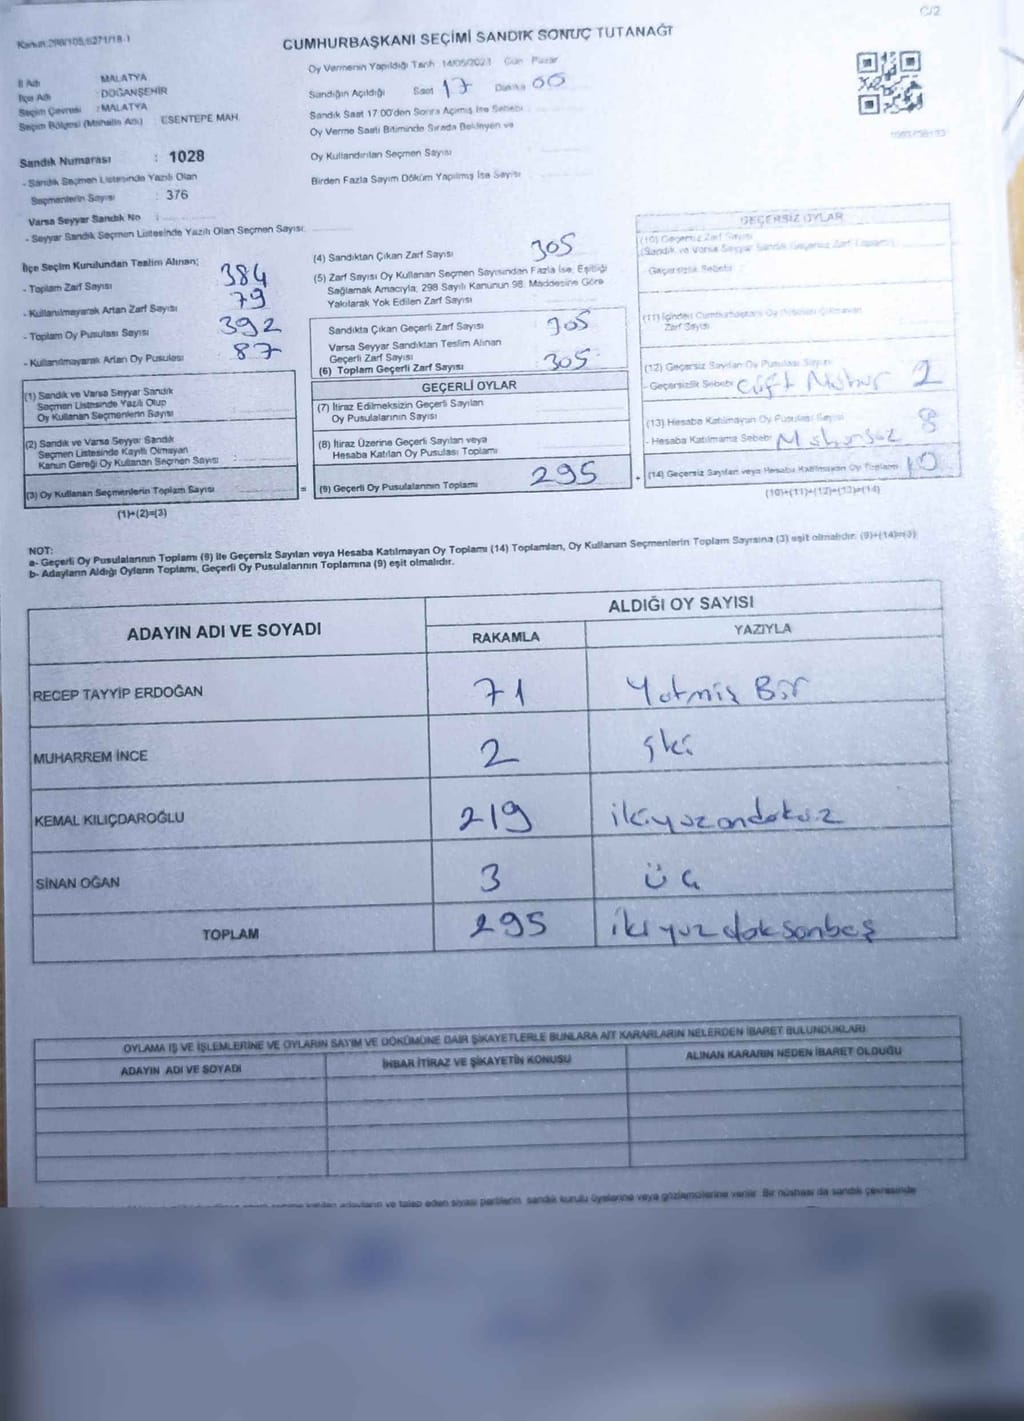 C/2
Kanun:298/105,6271/18-1
CUMHURBAŞKANI SEÇİMİ SANDIK SONUÇ TUTANAĞI
İl Adı : MALATYA
İlçe Adı : DOĞANŞEHİR
Seçim Çevresi : MALATYA
Seçim Bölgesi (Mahalle Adı) : ESENTEPE MAH.
Oy Vermenin Yapıldığı Tarih 14/05/2023 Gün Pazar
Sandığın Açıldığı Saat 17 Dakika 00
Sandık Saat 17.00'den Sonra Açılmış İse Sebebi
Oy Verme Saati Bitiminde Sırada Bekleyen ve
Oy Kullandırılan Seçmen Sayısı
Birden Fazla Sayım Döküm Yapılmış İse Sayısı
Sandık Numarası : 1028
- Sandık Seçmen Listesinde Yazılı Olan
Seçmenlerin Sayısı : 376
Varsa Seyyar Sandık No :
- Seyyar Sandık Seçmen Listesinde Yazılı Olan Seçmen Sayısı:
İlçe Seçim Kurulundan Teslim Alınan;
- Toplam Zarf Sayısı 384
- Kullanılmayarak Artan Zarf Sayısı 79
- Toplam Oy Pusulası Sayısı 392
- Kullanılmayarak Artan Oy Pusulası 87
(1) Sandık ve Varsa Seyyar Sandık
Seçmen Listesinde Yazılı Olup
Oy Kullanan Seçmenlerin Sayısı
(2) Sandık ve Varsa Seyyar Sandık
Seçmen Listesinde Kayıtlı Olmayan
Kanun Gereği Oy Kullanan Seçmen Sayısı :
(3) Oy Kullanan Seçmenlerin Toplam Sayısı
(1)+(2)=(3)
=
(4) Sandıktan Çıkan Zarf Sayısı 305
(5) Zarf Sayısı Oy Kullanan Seçmen Sayısından Fazla İse, Eşitliği
Sağlamak Amacıyla; 298 Sayılı Kanunun 98. Maddesine Göre
Yakılarak Yok Edilen Zarf Sayısı
Sandıkta Çıkan Geçerli Zarf Sayısı 305
Varsa Seyyar Sandıktan Teslim Alınan
Geçerli Zarf Sayısı
(6) Toplam Geçerli Zarf Sayısı 305
GEÇERLİ OYLAR
(7) İtiraz Edilmeksizin Geçerli Sayılan
Oy Pusulalarının Sayısı
(8) İtiraz Üzerine Geçerli Sayılan veya
Hesaba Katılan Oy Pusulası Toplamı
(9) Geçerli Oy Pusulalarının Toplamı 295
+
GEÇERSİZ OYLAR
(10) Geçersiz Zarf Sayısı
(Sandık ve Varsa Seyyar Sandık Geçersiz Zarf Toplamı)
- Geçersizlik Sebebi :
(11) İçinden Cumhurbaşkanı Oy Pusulası Çıkmayan
Zarf Sayısı
(12) Geçersiz Sayılan Oy Pusulası Sayısı
- Geçersizlik Sebebi Çift Mühür 2
(13) Hesaba Katılmayan Oy Pusulası Sayısı 8
- Hesaba Katılmama Sebebi Mühürsüz
(14) Geçersiz Sayılan veya Hesaba Katılmayan Oy Toplamı 10
(10)+(11)+(12)+(13)=(14)
NOT:
a- Geçerli Oy Pusulalarının Toplamı (9) ile Geçersiz Sayılan veya Hesaba Katılmayan Oy Toplamı (14) Toplamları, Oy Kullanan Seçmenlerin Toplam Sayısına (3) eşit olmalıdır. (9)+(14)=(3)
b- Adayların Aldığı Oyların Toplamı, Geçerli Oy Pusulalarının Toplamına (9) eşit olmalıdır.
ADAYIN ADI VE SOYADI
ALDIĞI OY SAYISI
RAKAMLA YAZIYLA
RECEP TAYYİP ERDOĞAN 71 Yetmiş Bir
MUHARREM İNCE 2 iki
KEMAL KILIÇDAROĞLU 219 ikiyuzondokuz
SİNAN OĞAN 3 üç
TOPLAM 295 ikiyuzdoksanbeş
OYLAMA İŞ VE İŞLEMLERİNE VE OYLARIN SAYIM VE DÖKÜMÜNE DAİR ŞİKAYETLERLE BUNLARA AİT KARARLARIN NELERDEN İBARET BULUNDUKLARI
ADAYIN ADI VE SOYADI İHBAR İTİRAZ VE ŞİKAYETİN KONUSU ALINAN KARARIN NEDEN İBARET OLDUĞU
adayların ve talep eden siyasi partilerin sandık kurulu üyelerine veya gözlemcilerine verilir. Bir nüshası da sandık çevresinde